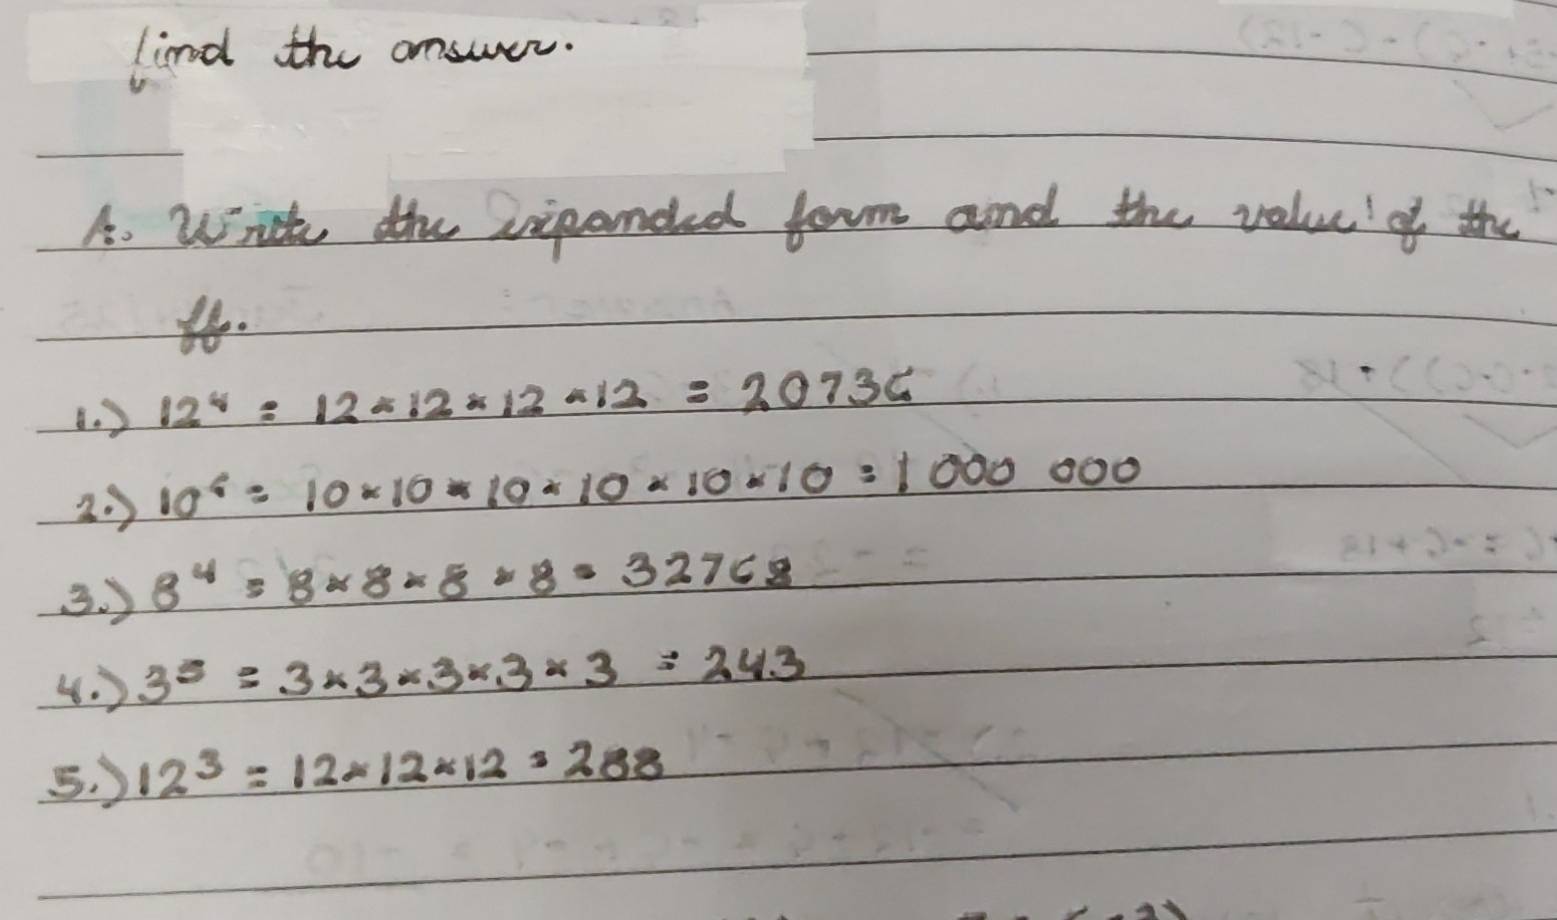 find the answer.
A. Write the expanded form and the value of the
ff.
1.) 12⁴ = 12 × 12 × 12 × 12 = 20736
2.) 10⁶ = 10 × 10 × 10 × 10 × 10 × 10 = 1 000 000
3.) 8⁴ = 8 × 8 × 8 × 8 = 32768
4.) 3⁵ = 3 × 3 × 3 × 3 × 3 = 243
5.) 12³ = 12 × 12 × 12 = 288